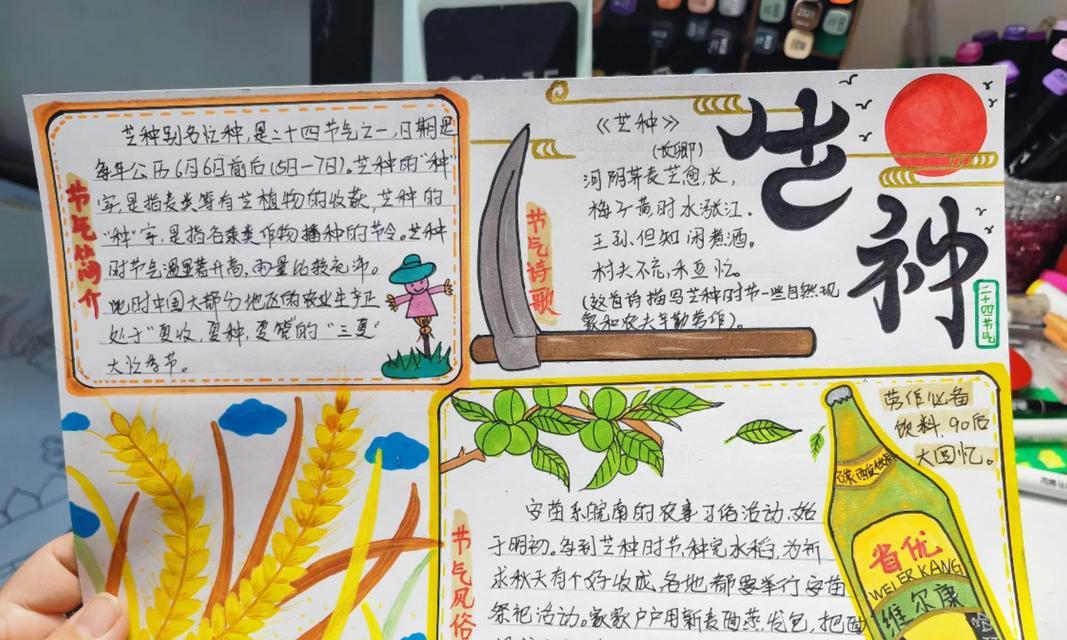 芒种
二十四节气
节气简介
芒种别名忙种,是二十四节气之一,日期是
每年公历6月6日前后(5日-7日)。芒种的"种"
字,是指麦类等有芒植物的收获,芒种的
"种"字,是指谷黍类作物播种的节令。芒种
时节气温显著升高,雨量比较充沛。
此时中国大部分地区的农业生产正
处于"夏收,夏种,夏管"的"三夏"
大忙季节。
节气诗歌
《芒种》
(长卿)
河阴荞麦芒愈长,
梅子黄时水涨江。
王孙但知闲煮酒。
村夫不忘禾豆忙。
(这首诗描写芒种时节一些自然现
象和农夫辛勤劳作)。
劳作必备
饮料,90后
大回忆。
碳酸饮料
省优
WEI ER KANG
维尔康
节气风俗
安苗系皖南的农事习俗活动,始
于明初。每到芒种时节,种完水稻,为祈
求秋天有个好收成,各地都要举行安苗
祭祀活动。家家户户用新麦面蒸发包,把面